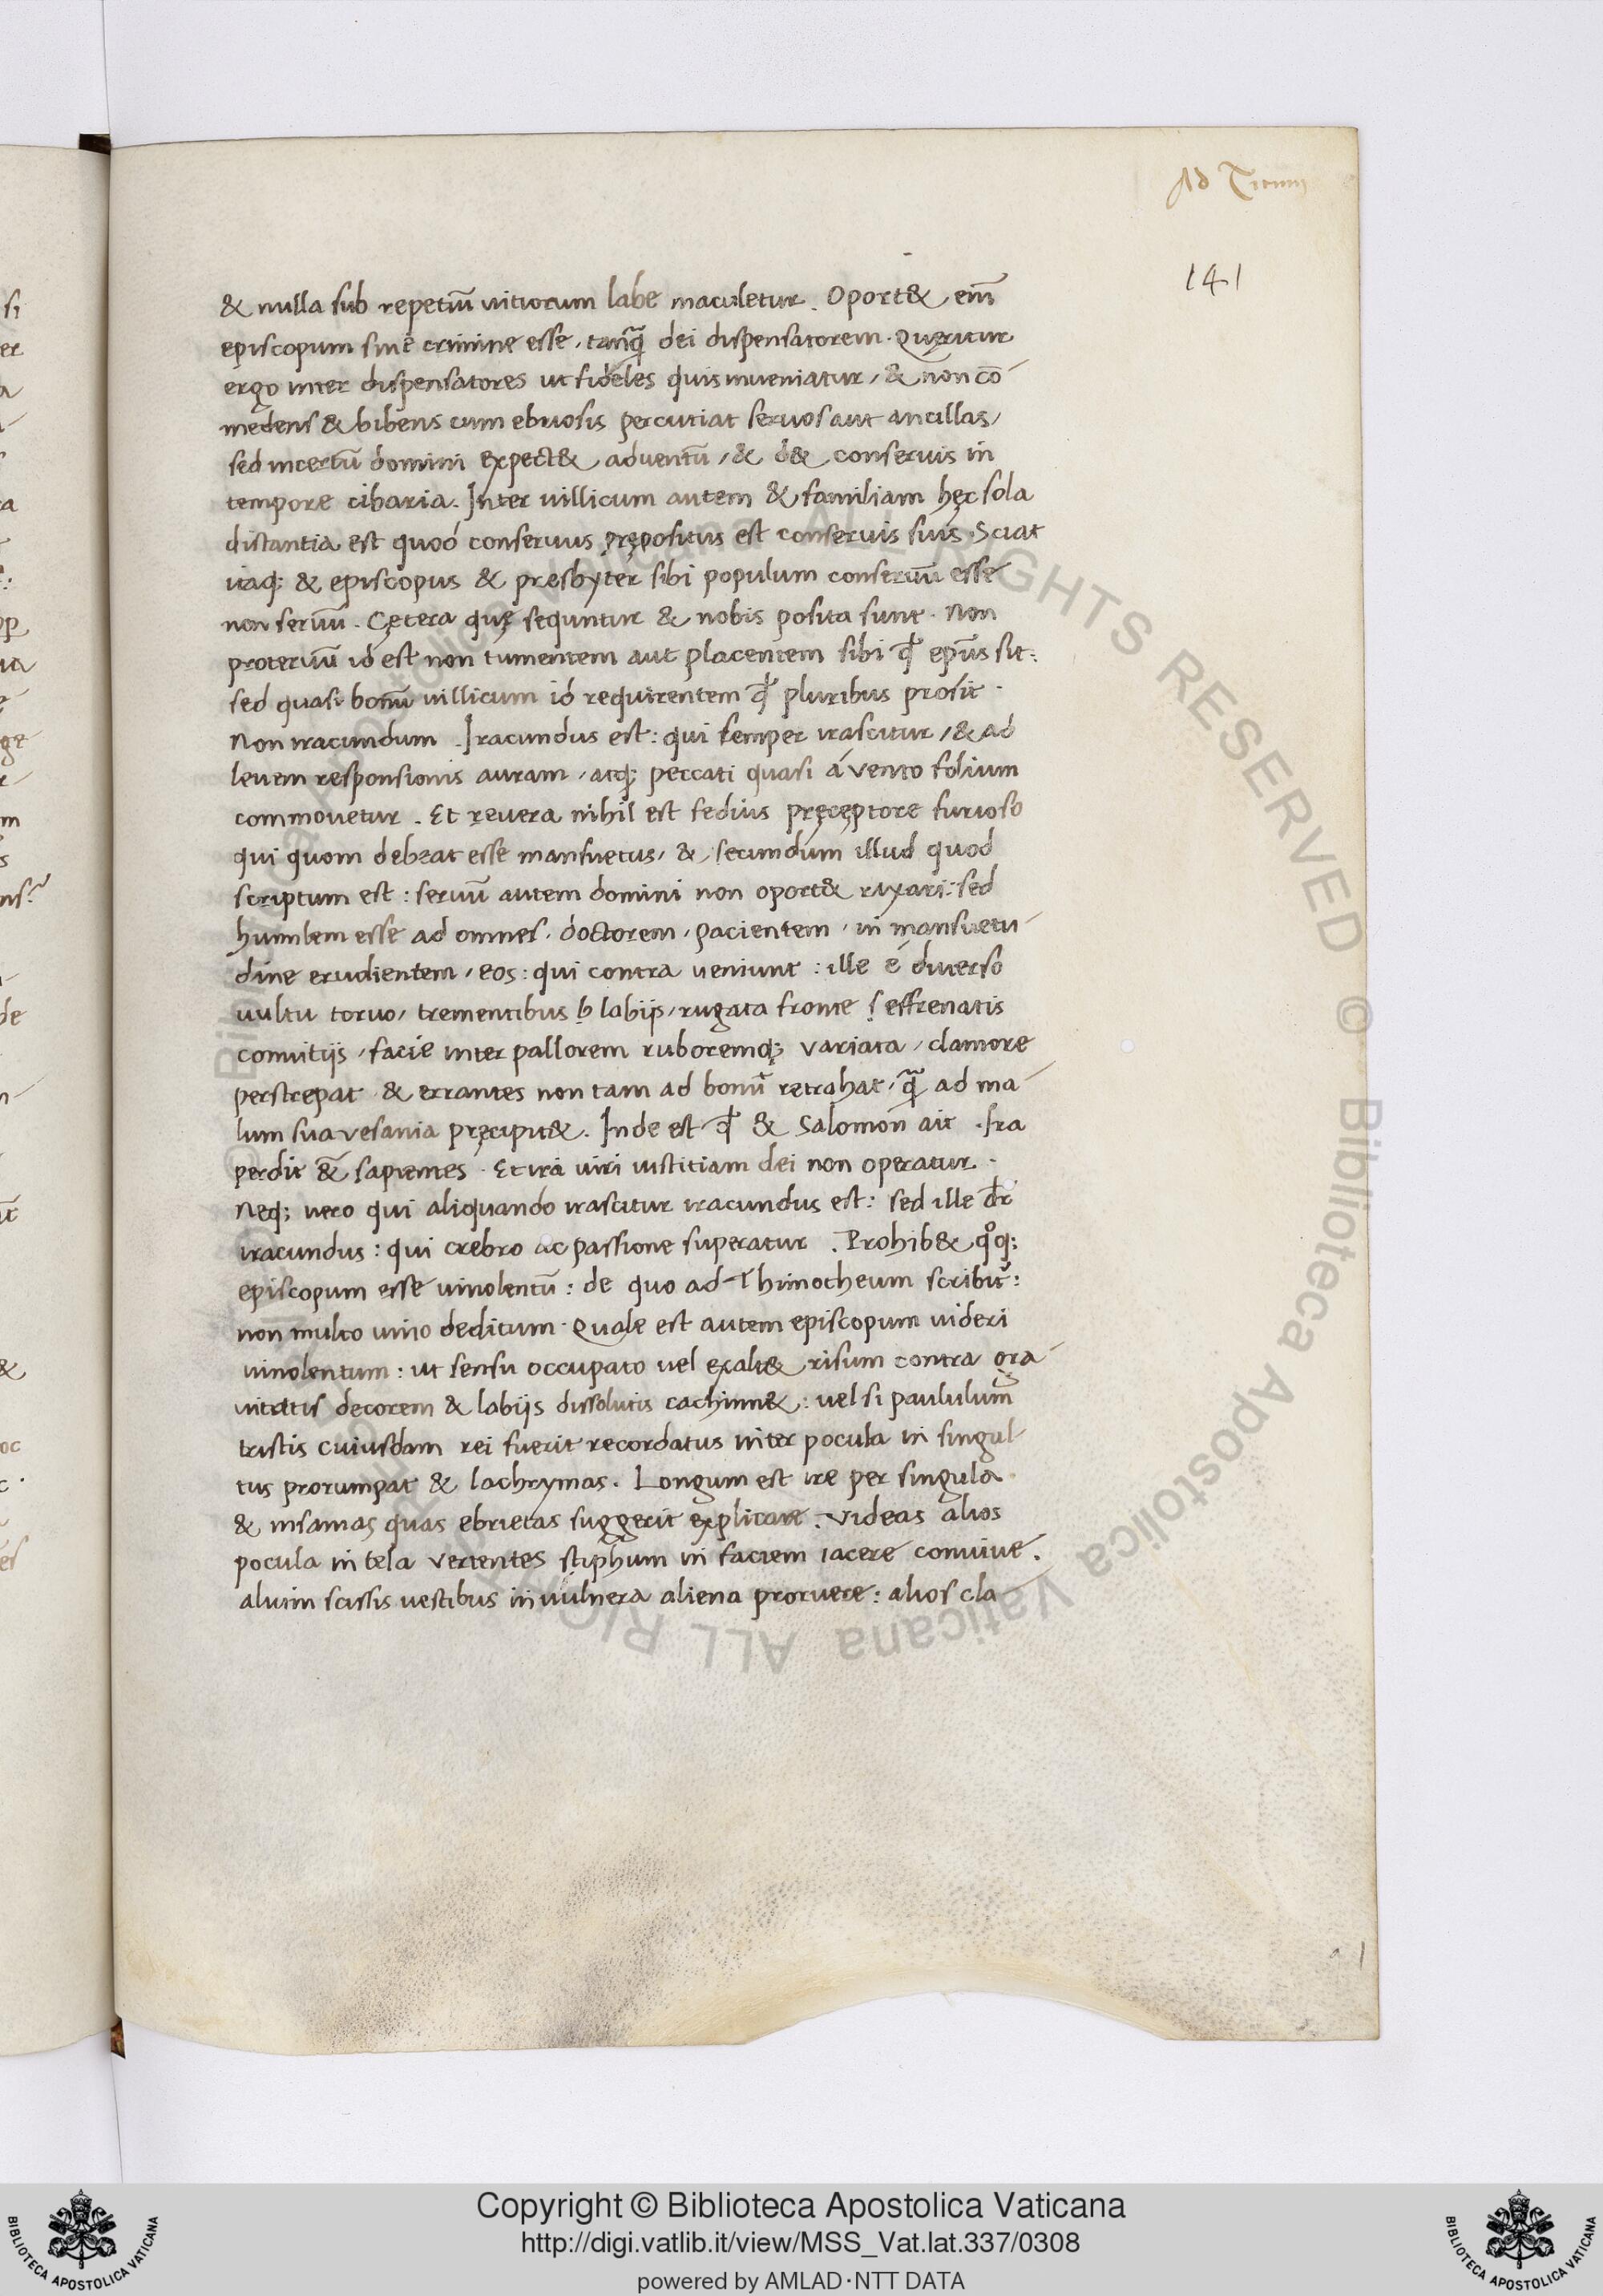 Ad Titum
141
& nulla sub repetiũ vitiorum labe maculetur. Oport& eñi
episcopum sine crimine esse, tanꝗ̃ dei dispensatorem. Quęritur
ergo inter dispensatores ut fideles quis inveniatur, & non cō
medens & bibens cum ebriosis percutiat servos aut ancillas,
sed incertũ domini expect& adventũ, & d& conservis in
tempore cibaria. Inter villicum autem & familiam hęc sola
distantia est quod conservus prępositus est conservis suis. Sciat
itaq; & episcopus & presbyter sibi populum conservũ esse
non servũ. Cętera quę sequntur & nobis posita sunt. Non
protervũ id est non tumentem aut placentem sibi ꝙ ep̃us sit:
sed quasi bonũ villicum id requirentem ꝙ pluribus prosit.
Non iracundum. Iracundus est: qui semper irascitur, & ad
levem responsionis auram, atq; peccati quasi á vento folium
commovetur. Et revera nihil est fedius pręcęptore furioso
qui quom debeat esse mansuetus, & secundum illud quod
scriptum est: servũ autem domini non oport& rixari: sed
humilem esse ad omnes, doctorem, pacientem, in mansuetu
dine erudientem, eos: qui contra veniunt: ille é diverso
vultu torvo, trementibus b labijs, rugata fronte s effrenatis
convitijs, facie inter pallorem ruboremq; variata, clamore
perstrepat & errantes non tam ad bonũ retrahat, ꝗ̃ ad ma
lum sua vesania pręcipit&. Inde est ꝙ & Salomon ait. Ira
perdit &̃ sapientes. Et ira viri iustitiam dei non operatur.
Neq; vero qui aliquando irascitur iracundus est: sed ille dr̃
iracundus: qui crebro ac passione superatur. Prohib& qͦq;
episcopum esse vinolentũ: de quo ad Thimotheum scribit̃:
non multo vino deditum. Quale est autem episcopum videri
vinolentum: ut sensu occupato vel exalt& risum contra gra
vitatis decorem & labijs dissolutis cachinn&: vel si paululum
tristis cuiusdam rei fuerit recordatus inter pocula in singul
tus prorumpat & lachrymas. Longum est ire per singula
& insanias quas ebrietas suggerit explicare. Videas alios
pocula in tela vertentes sciphum in faciem iacere convivę.
alium scissis vestibus in vulnera aliena proruere: alios cla
Copyright © Biblioteca Apostolica Vaticana
http://digi.vatlib.it/view/MSS_Vat.lat.337/0308
powered by AMLAD·NTT DATA
BIBLIOTECA APOSTOLICA VATICANA
BIBLIOTECA APOSTOLICA VATICANA